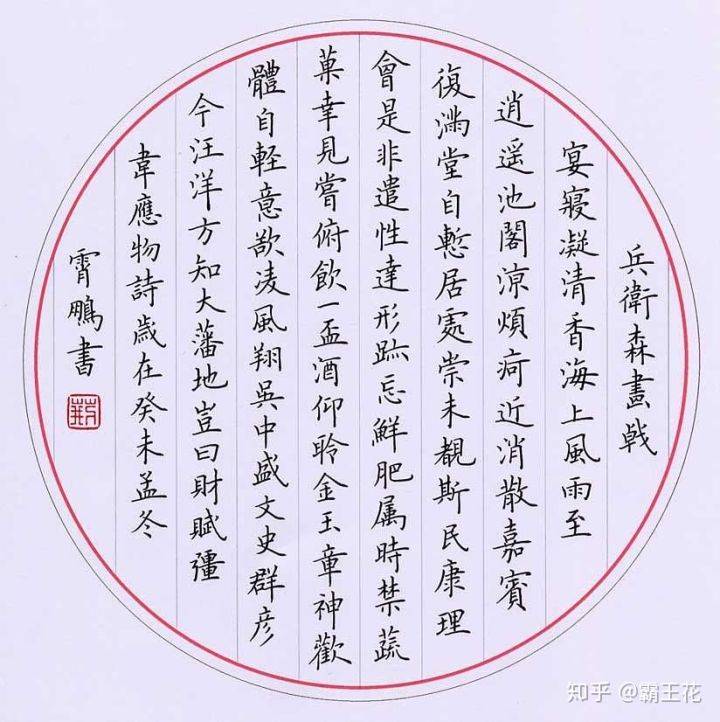 兵衛森畫戟
宴寢凝清香海上風雨至
逍遥池閣涼煩疴近消散嘉賓
復滿堂自慙居處崇未覩斯民康理
會是非遣性達形跡忘鮮肥属時禁蔬
菓幸見嘗俯飲一盃酒仰聆金玉章神歡
體自軽意欲凌風翔吳中盛文史群彦
今汪洋方知大藩地豈曰財賦彊
韋應物詩歲在癸未孟冬
霄鵬書
知乎 @霸王花